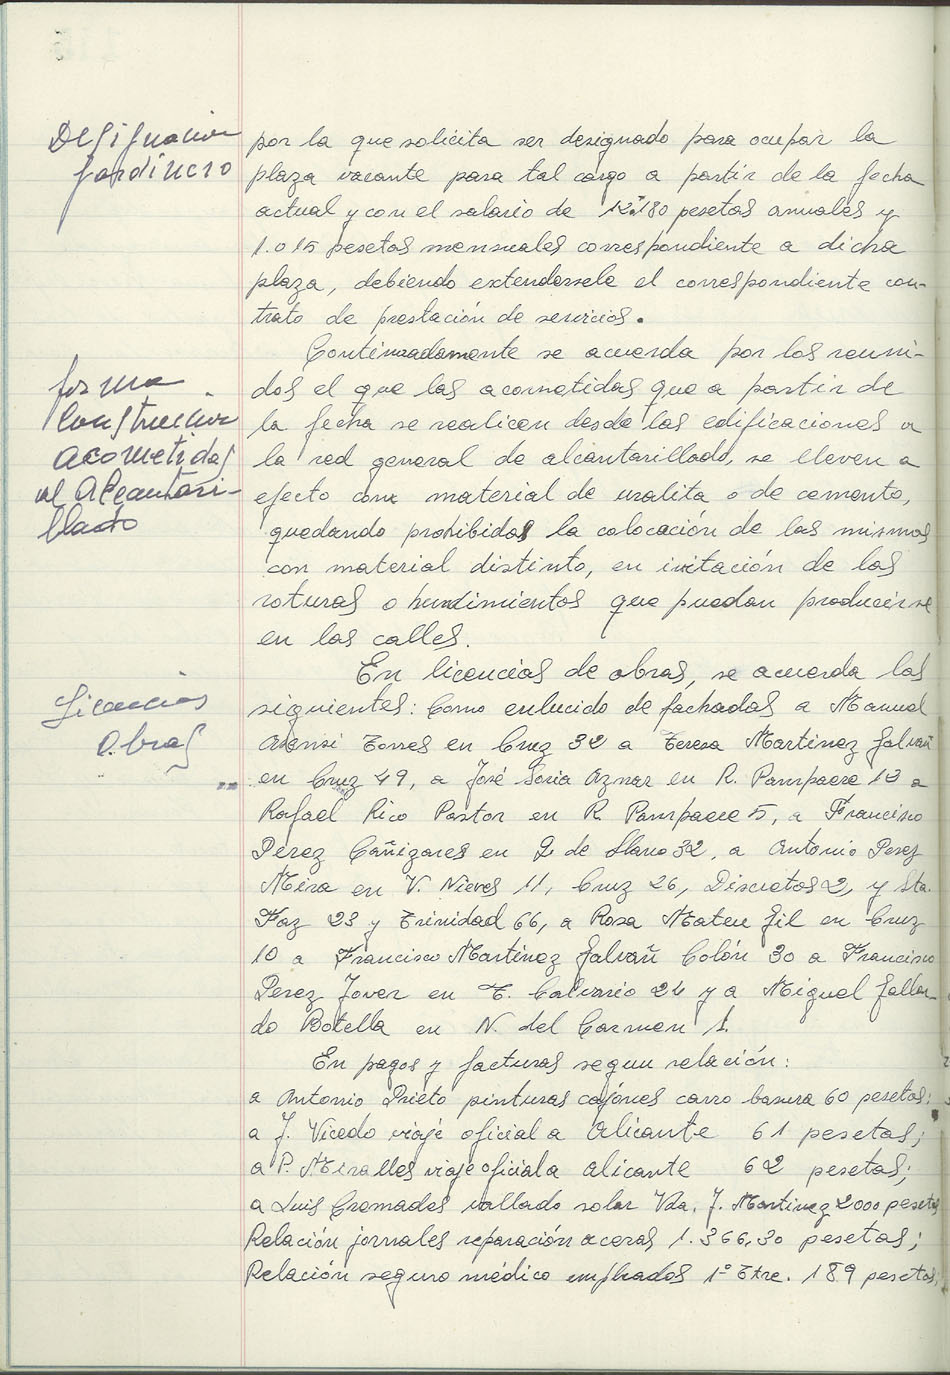 Designación
Jardinero
por la que solicita ser designado para ocupar la
plaza vacante para tal cargo a partir de la fecha
actual y con el salario de 12.180 pesetas anuales y
1.015 pesetas mensuales correspondiente a dicha
plaza, debiendo extendersele el correspondiente con-
trato de prestación de servicios.
forma
Construcción
acometidas
al Alcantari-
llado
Continuadamente se acuerda por los reuni-
dos el que las acometidas que a partir de
la fecha se realicen desde las edificaciones a
la red general de alcantarillado, se lleven a
efecto con material de uralita o de cemento,
quedando prohibidas la colocación de las mismas
con material distinto, en evitación de las
roturas o hundimientos que puedan producirse
en las calles.
Licencias
Obras
En licencias de obras, se acuerda las
siguientes: Como enlucido de fachadas a Manuel
Asensi Torres en Cruz 32 a Teresa Martinez Galvañ
en Cruz 49, a José Soria Aznar en R. Pampaere 12 a
Rafael Rico Pastor en R. Pampaere 5, a Francisco
Perez Cañizares en Q. de Llano 32, a Antonio Perez
Mira en V. Nieves 11, Cruz 26, Discretos 2, y Sta.
Faz 23 y Trinidad 66, a Rosa Mateu Gil en Cruz
10 a Francisco Martinez Galvañ Colón 30 a Francisco
Perez Jover en T. Calvario 24 y a Miguel Gallar-
do Botella en N. del Carmen 1.
En pagos y facturas segun relación:
a Antonio Prieto pinturas cajones carro basura 60 pesetas;
a J. Vicedo viaje oficial a Alicante 61 pesetas;
a P. Miralles viaje oficial a alicante 62 pesetas;
a Luis Cremades vallado solar Vda. J. Martinez 2000 pesetas
Relación jornales reparación aceras 1.366,30 pesetas;
Relación seguro médico empleados 1º Ttre. 189 pesetas;